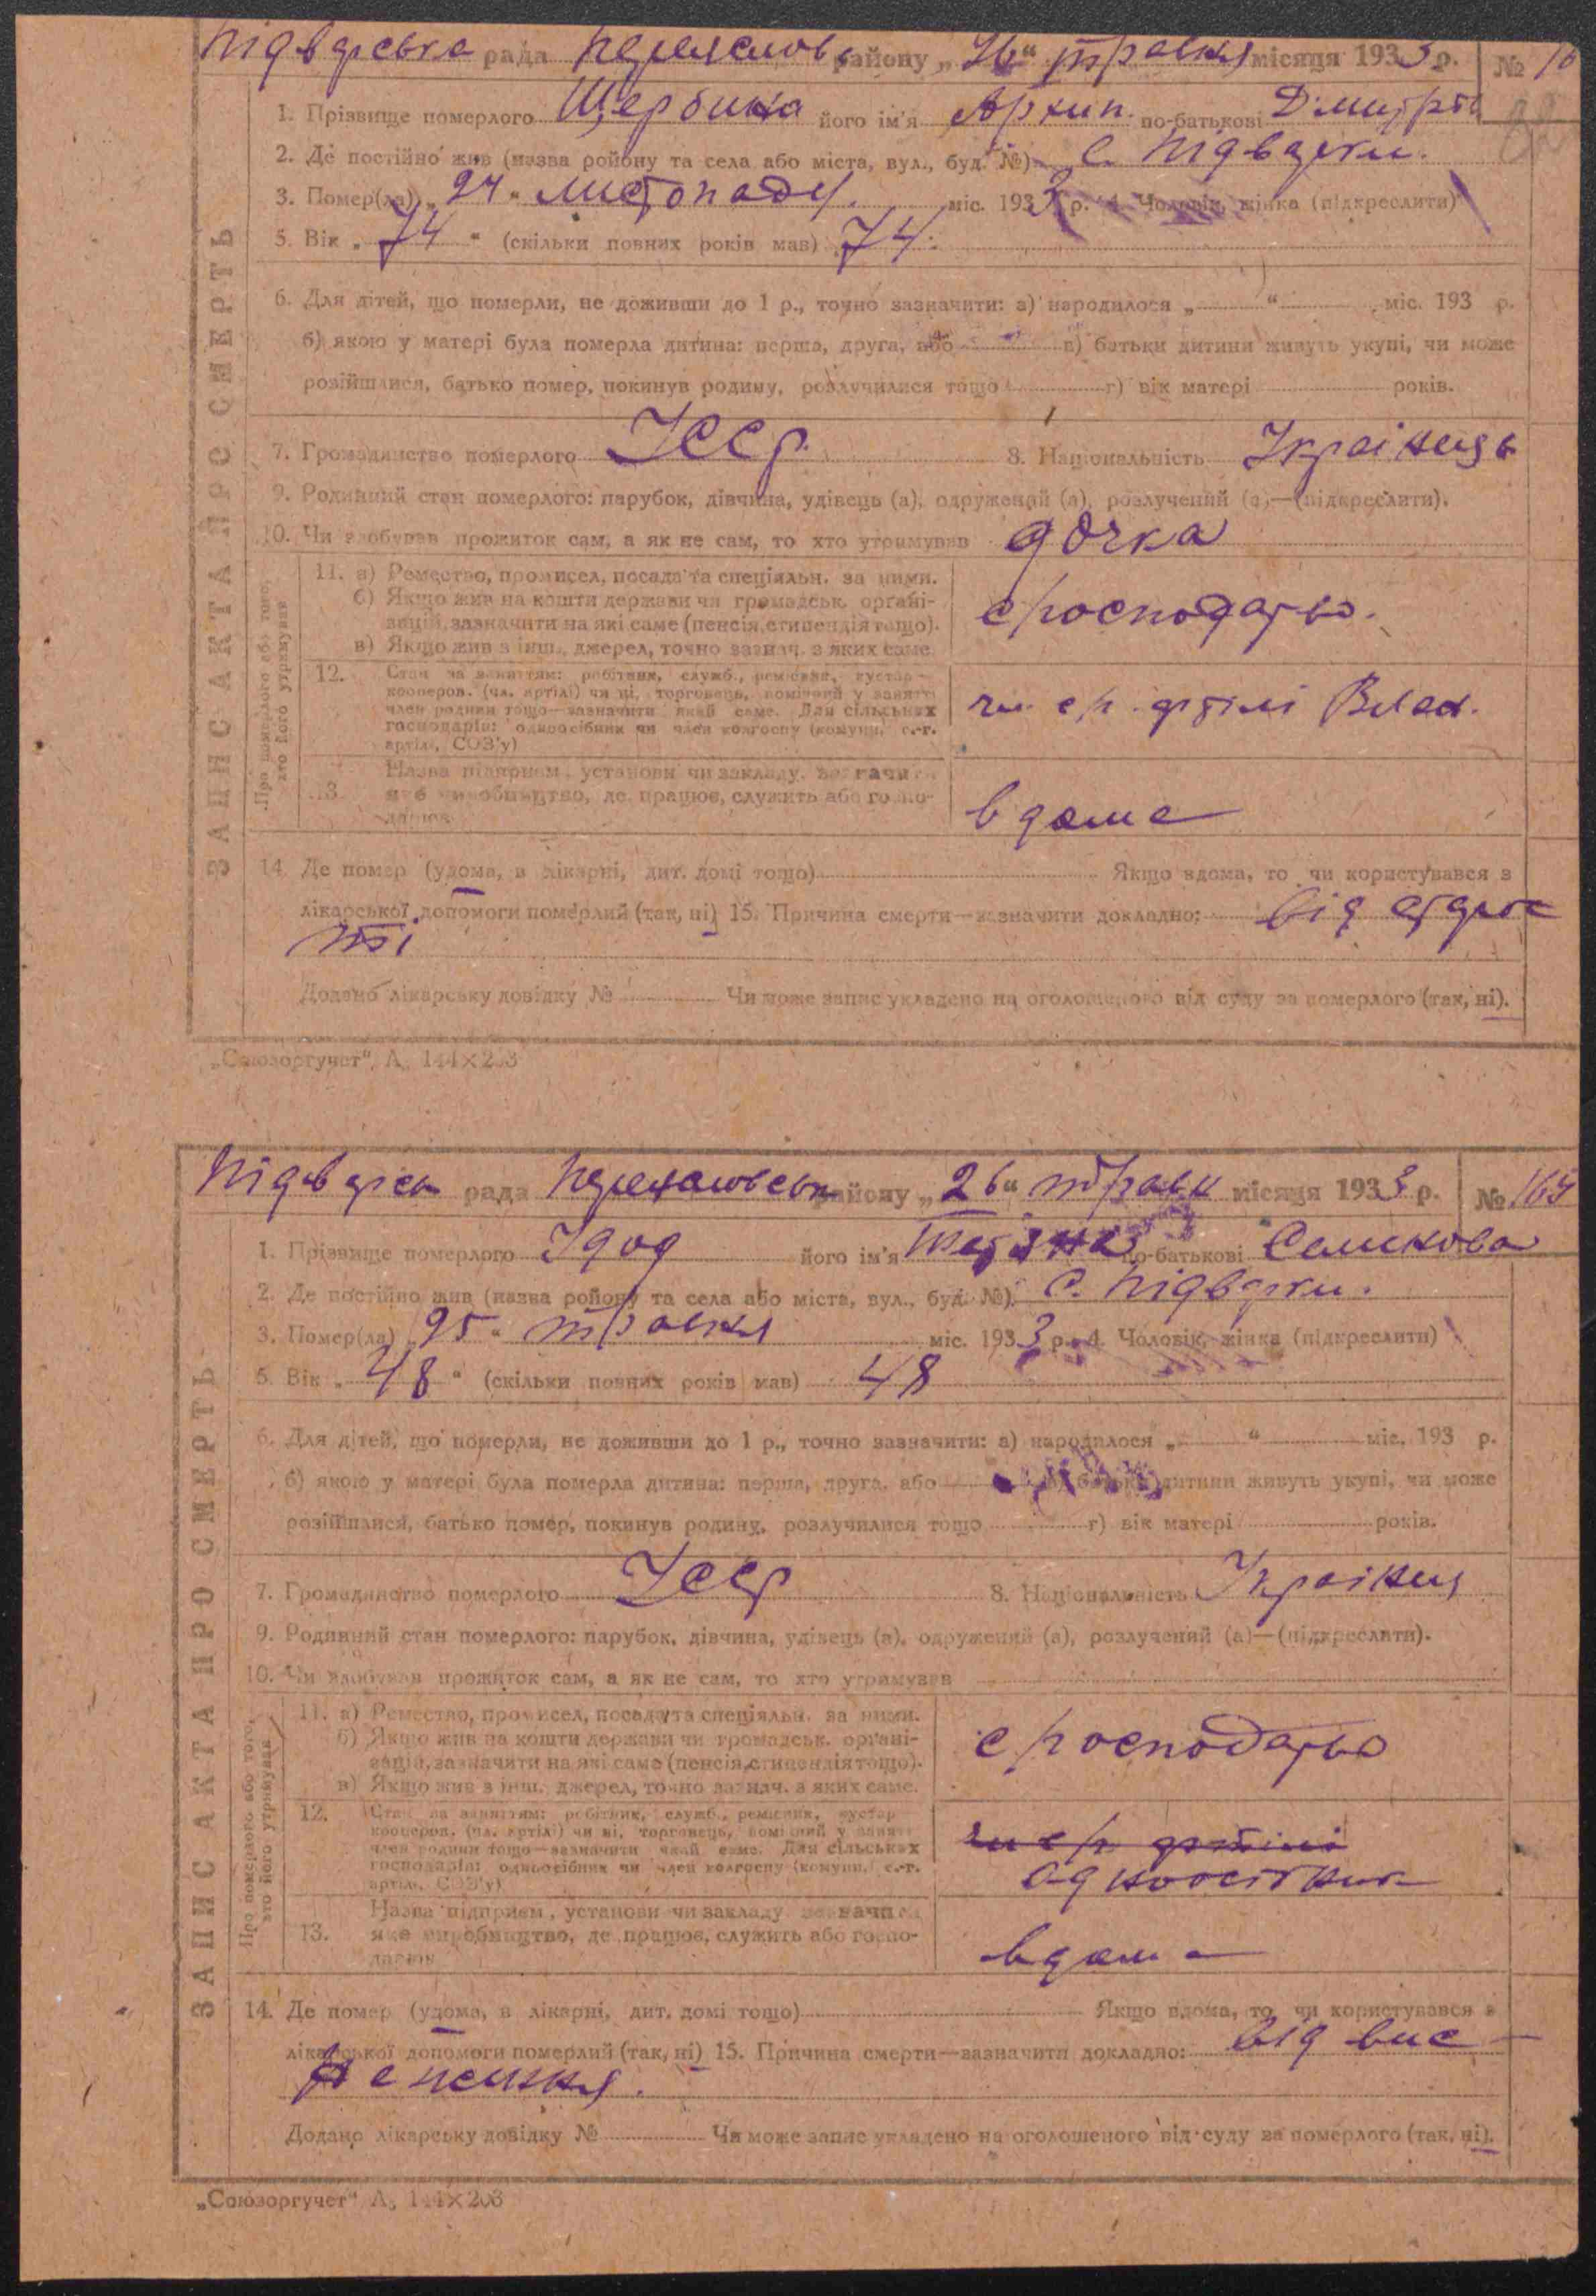 Підварська рада Переяславс району „26“ травня місяця 1933 р. № 16
1. Прізвище померлого Щербина його ім'я Архип по-батькові Дмитров
2. Де постійно жив (назва ройону та села або міста, вул., буд. №) с. Підварки.
3. Помер(ла) „24“ листопаду. міс. 1933 р. 4. Чоловік, жінка (підкреслити)
5. Вік „74“ (скільки повних років мав) 74.
6. Для дітей, що померли, не доживши до 1 р., точно зазначити: а) народилося „ “ міс. 193 р.
б) якою у матері була померла дитина: перша, друга, або в) батьки дитини живуть укупі, чи може
розійшлися, батько помер, покинув родину, розлучилися тощо г) вік матері років.
7. Громадянство померлого Усср 8. Національність Українець
9. Родинний стан померлого: парубок, дівчина, удівець (а), одружений (а), розлучений (а)—(підкреслити).
10. Чи здобував прожиток сам, а як не сам, то хто утримував дочка
ЗАПИС АКТА ПРО СМЕРТЬ
Про померлого або того, хто його утримував
11. а) Ремество, промисел, посада та спеціяльн. за ними.
б) Якщо жив на кошти держави чи громадськ. органі-
зацій, зазначити на які саме (пенсія, стипендія тощо).
в) Якщо жив з інш. джерел, точно зазнач. з яких саме.
с/господарьо.
12. Стан за заняттям: робітник, служб., ремісник, кустар
кооперов. (чл. артілі) чи ні, торговець, помічний у занятті
член родини тощо—зазначити який саме. Для сільських
господарів: одноосібник чи член колгоспу (комуни, с.-г.
артілі, СОЗ'у)
чл. с/г. артілі Влад.
13. Назва підприєм., установи чи закладу, зазначити
яке виробництво, де працює, служить або госпо-
дарює
вдома
14. Де помер (удома, в лікарні, дит. домі тощо) Якщо вдома, то чи користувався з
лікарської допомоги померлий (так, ні) 15. Причина смерти—зазначити докладно: від старос
ті
Додано лікарську довідку № Чи може запис укладено на оголошеного від суду за померлого (так, ні).
„Союзоргучет“ А₅ 144×203
Підварськ рада Переяславськ району „26“ травн місяця 1933 р. №
1. Прізвище померлого Удод його ім'я Тетяна по-батькові
2. Де постійно жив (назва ройону та села або міста, вул., буд. №) с. Підварки.
3. Помер(ла) „25“ травня міс. 1933 р. 4. Чоловік, жінка (підкреслити)
5. Вік „48“ (скільки повних років мав) 48
6. Для дітей, що померли, не доживши до 1 р., точно зазначити: а) народилося „ “ міс. 193 р.
б) якою у матері була померла дитина: перша, друга, або в) батьки дитини живуть укупі, чи може
розійшлися, батько помер, покинув родину, розлучилися тощо г) вік матері років.
7. Громадянство померлого Усср 8. Національність Українц
9. Родинний стан померлого: парубок, дівчина, удівець (а), одружений (а), розлучений (а)—(підкреслити).
10. Чи здобував прожиток сам, а як не сам, то хто утримував
ЗАПИС АКТА ПРО СМЕРТЬ
Про померлого або того, хто його утримував
11. а) Ремество, промисел, посада та спеціяльн. за ними.
б) Якщо жив на кошти держави чи громадськ. органі-
зацій, зазначити на які саме (пенсія, стипендія тощо).
в) Якщо жив з інш. джерел, точно зазнач. з яких саме.
с/господарьо
12. Стан за заняттям: робітник, служб., ремісник, кустар
кооперов. (чл. артілі) чи ні, торговець, помічний у занятті
член родини тощо—зазначити який саме. Для сільських
господарів: одноосібник чи член колгоспу (комуни, с.-г.
артілі, СОЗ'у)
чл с/г. артілі
одноосібник
13. Назва підприєм., установи чи закладу зазначити
яке виробництво, де працює, служить або госпо-
дарює
вдома
14. Де помер (удома, в лікарні, дит. домі тощо) Якщо вдома, то чи користувався з
лікарської допомоги померлий (так, ні) 15. Причина смерти—зазначити докладно: від вис
неження.
Додано лікарську довідку № Чи може запис укладено на оголошеного від суду за померлого (так, ні).
„Союзоргучет“ А₅ 144×203